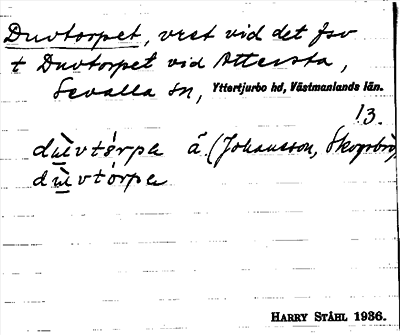 Duvtorpet, vest vid det fsv
t Duvtorpet vid Attersta,
Sevalla sn, Yttertjurbo hd, Västmanlands län.
13.
dùvtórpa å. (Johansson, Skogsbo)
dùvtórpa
HARRY STÅHL 1936.